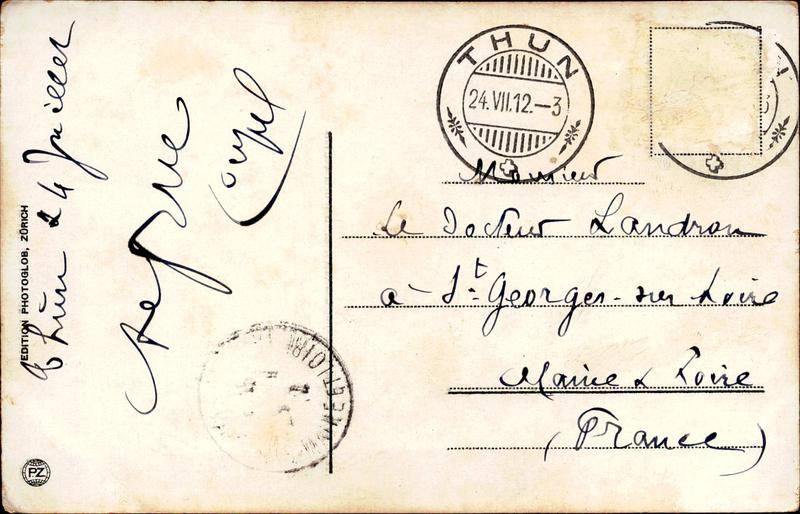 Thun 24 Juillet
EDITION PHOTOGLOB, ZÜRICH
PZ
THUN
24.VII.12.–3
Monsieur
le Docteur Landron
à St Georges-sur Loire
Maine & Loire
(France)